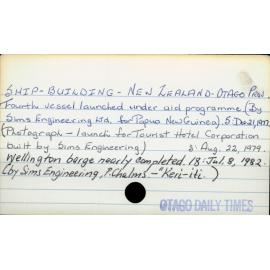 SHIP-BUILDING - NEW ZEALAND-OTAGO PROV.
Fourth vessel launched under aid programme. (By
Sims Engineering Ltd. for Papua New Guinea). 5: Dec 21, 1977
(Photograph - launch for Tourist Hotel Corporation
built by Sims Engineering) 3: Aug. 22, 1979.
Wellington barge nearly completed. 18: Jul. 8, 1982
(by Sims Engineering, P. Chalms - "Keri-iti. )
OTAGO DAILY TIMES